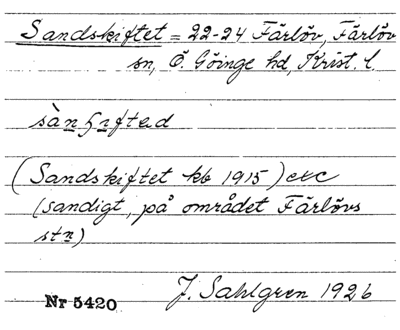 Sandskiftet = 22-24 Färlöv, Färlöv
sn, Ö. Göinge hd, Krist. l.
(Sandskiftet kb 1915) etc
(sandigt, på området Färlövs
stn)
Nr 5420 J. Sahlgren 1926